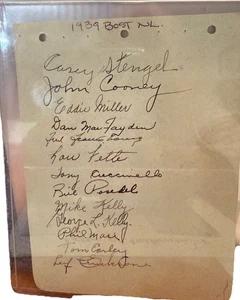 1939 BOST N.L.
Casey Stengel
John Cooney
Eddie Miller
Dan MacFayden
Lou Fette
Tony Cuccinello
Bill Posedel
Mike Kelly
George L. Kelly
Phil Masi
Tom Earley